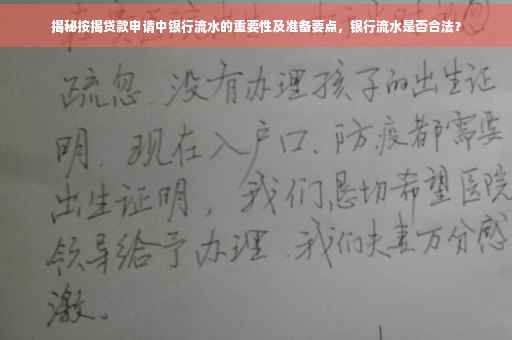 揭秘按揭贷款申请中银行流水的重要性及准备要点，银行流水是否合法？
疏忽、没有办理孩子的出生证
明、现在入户口、防疫都需要
出生证明，我们恳切希望医院
领导给予办理、我们夫妻万分感
激。